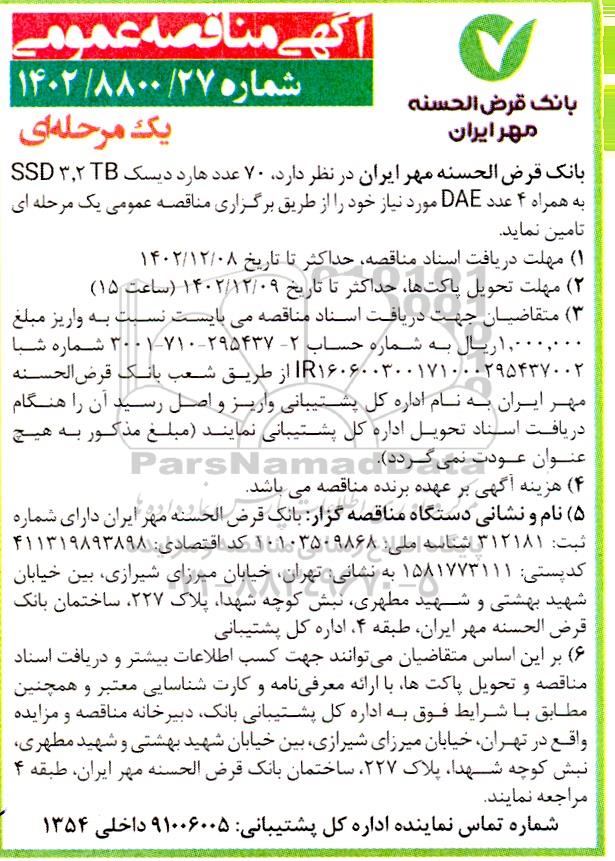 آگهی مناقصه عمومی
شماره ۲۷/ ۸۸۰۰/ ۱۴۰۲
یک مرحله‌ای
بانک قرض الحسنه
مهر ایران
بانک قرض الحسنه مهر ایران در نظر دارد، ۷۰ عدد هارد دیسک SSD ۳,۲ TB
به همراه ۴ عدد DAE مورد نیاز خود را از طریق برگزاری مناقصه عمومی یک مرحله ای
تامین نماید.
۱) مهلت دریافت اسناد مناقصه، حداکثر تا تاریخ ۱۴۰۲/۱۲/۰۸
۲) مهلت تحویل پاکت‌ها، حداکثر تا تاریخ ۱۴۰۲/۱۲/۰۹ (ساعت ۱۵)
۳) متقاضیان جهت دریافت اسناد مناقصه می بایست نسبت به واریز مبلغ
۱,۰۰۰,۰۰۰ریال به شماره حساب ۲- ۲۹۵۴۳۷-۷۱۰-۳۰۰۱ شماره شبا
IR۱۶۰۶۰۰۳۰۰۱۷۱۰۰۰۲۹۵۴۳۷۰۰۲ از طریق شعب بانک قرض‌الحسنه
مهر ایران به نام اداره کل پشتیبانی واریز و اصل رسید آن را هنگام
دریافت اسناد تحویل اداره کل پشتیبانی نمایند (مبلغ مذکور به هیچ
عنوان عودت نمی‌گردد).
۴) هزینه آگهی بر عهده برنده مناقصه می باشد.
۵) نام و نشانی دستگاه مناقصه گزار: بانک قرض الحسنه مهر ایران دارای شماره
ثبت: ۳۱۲۱۸۱ شناسه ملی: ۱۰۱۰۳۵۰۹۸۶۸ کد اقتصادی: ۴۱۱۳۱۹۸۹۳۸۹۸
کدپستی: ۱۵۸۱۷۷۳۱۱۱ به نشانی: تهران، خیابان میرزای شیرازی، بین خیابان
شهید بهشتی و شهید مطهری، نبش کوچه شهدا، پلاک ۲۲۷، ساختمان بانک
قرض الحسنه مهر ایران، طبقه ۴، اداره کل پشتیبانی
۶) بر این اساس متقاضیان می‌توانند جهت کسب اطلاعات بیشتر و دریافت اسناد
مناقصه و تحویل پاکت ها، با ارائه معرفی‌نامه و کارت شناسایی معتبر و همچنین
مطابق با شرایط فوق به اداره کل پشتیبانی بانک، دبیرخانه مناقصه و مزایده
واقع در تهران، خیابان میرزای شیرازی، بین خیابان شهید بهشتی و شهید مطهری،
نبش کوچه شهدا، پلاک ۲۲۷، ساختمان بانک قرض الحسنه مهر ایران، طبقه ۴
مراجعه نمایند.
شماره تماس نماینده اداره کل پشتیبانی: ۹۱۰۰۶۰۰۵ داخلی ۱۳۵۴
ParsNamadData